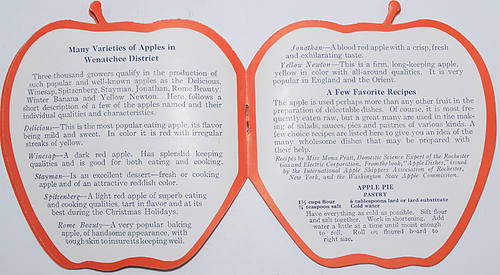 Many Varieties of Apples in
Wenatchee District
Three thousand growers qualify in the production of
such popular and well-known apples as the Delicious,
Winesap, Spitzenberg, Stayman, Jonathan, Rome Beauty,
Winter Banana and Yellow Newton. Here follows a
short description of a few of the apples named and their
individual qualities and characteristics.
Delicious—This is the most popular eating apple, its flavor
being mild and sweet. In color it is red with irregular
streaks of yellow.
Winesap—A dark red apple. Has splendid keeping
qualities and is good for both eating and cooking.
Stayman—Is an excellent dessert—fresh or cooking
apple and of an attractive reddish color.
Spitzenberg—A light red apple of superb eating
and cooking qualities, tart in flavor and at its
best during the Christmas Holidays.
Rome Beauty—A very popular baking
apple, of handsome appearance, with
tough skin to insure its keeping well.
Jonathan—A blood red apple with a crisp, fresh
and exhilarating flavor.
Yellow Newton—This is a firm, long-keeping apple,
yellow in color with all-around qualities. It is very
popular in England and the Orient.
A Few Favorite Recipes
The apple is used perhaps more than any other fruit in the
preparation of delectable dishes. Of course, it is most fre-
quently eaten raw, but a great many are used in the mak-
ing of salads, sauces, pies and pastries of various kinds. A
few choice recipes are listed here to give you an idea of the
many wholesome dishes that may be prepared with
their help.
Recipes by Miss Mena Pratt, Domestic Science Expert of the Rochester
Gas and Electric Corporation. From the book, "Apple Dishes," issued
by the International Apple Shippers Association of Rochester,
New York, and the Washington State Apple Commission.
APPLE PIE
PASTRY
1½ cups flour 6 tablespoons lard or lard substitute
¾ teaspoon salt Cold water
Have everything as cold as possible. Sift flour
and salt together. Work in shortening. Add
water a little at a time until moist enough
to roll. Roll on floured board to
right size.